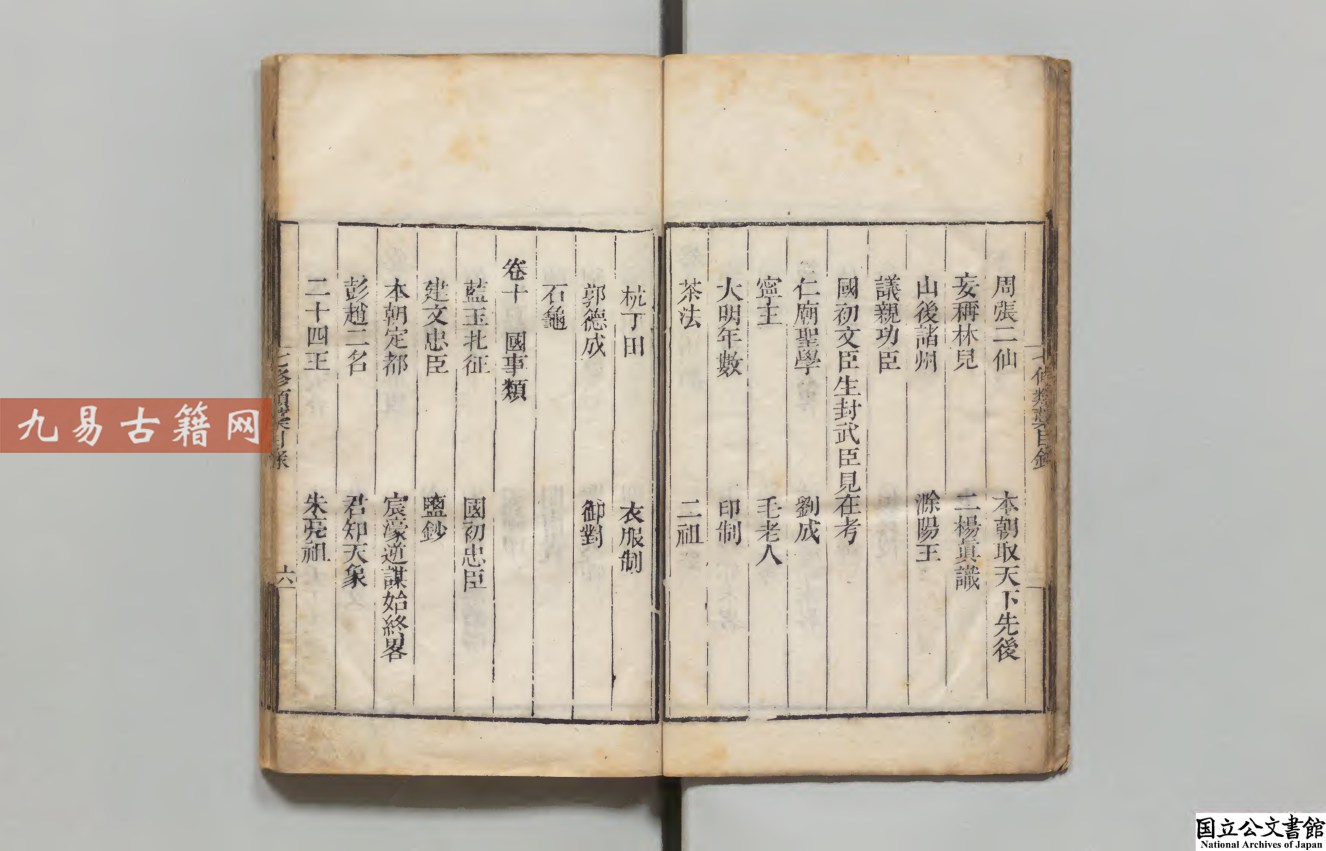 七修類藁目錄
周張二仙　本朝取天下先後
妄稱林兒　二楊真識
山後諸州　滁陽王
議親功臣
國初文臣生封武臣見在考
仁廟聖學　劉成
寧王　毛老人
大明年數　印制
茶法　二祖
杭丁田　衣服制
郭德成　御對
石龜
卷十　國事類
藍玉北征　國初忠臣
建文忠臣　鹽鈔
本朝定都　宸濠逆謀始終畧
彭趙二名　君知天象
二十四王　朱亮祖
七修類藁目錄　六
九易古籍网
国立公文書館
National Archives of Japan